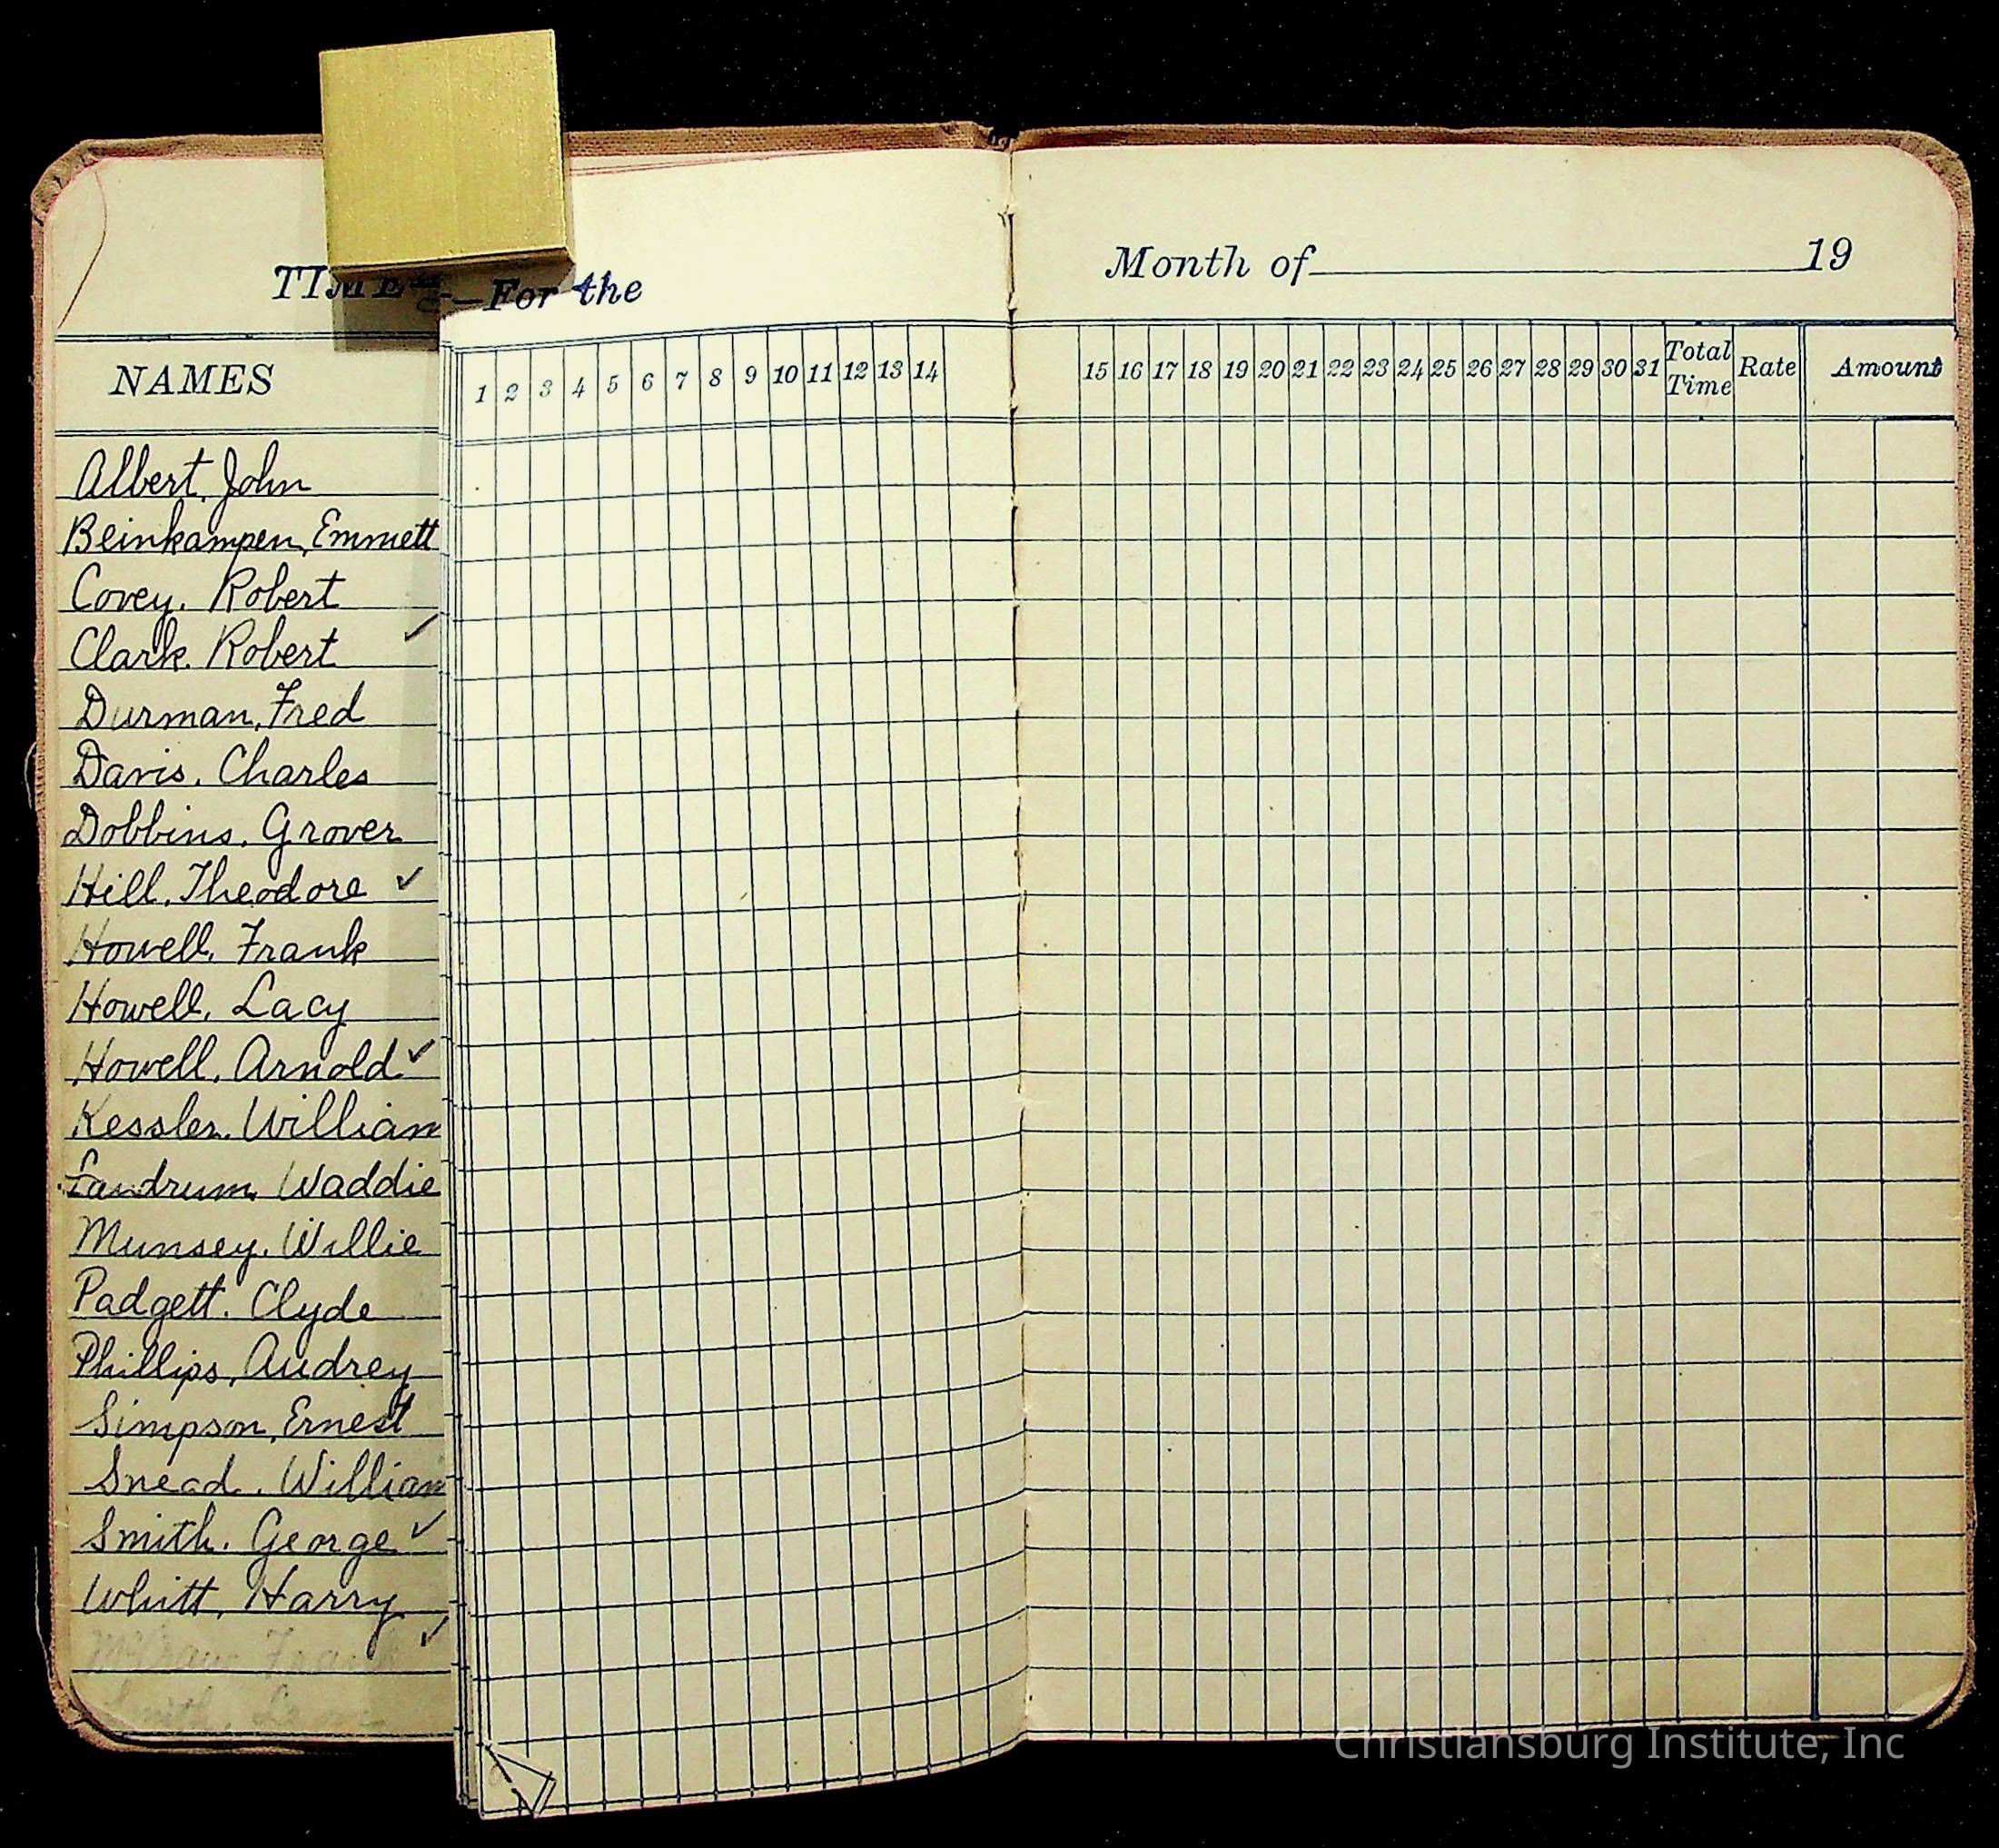 TIME—For the
Month of 19
NAMES
1 2 3 4 5 6 7 8 9 10 11 12 13 14
15 16 17 18 19 20 21 22 23 24 25 26 27 28 29 30 31 Total Time Rate Amount
Albert, John
Beinkampen, Emmett
Covey. Robert
Clark. Robert ✓
Durman, Fred
Davis. Charles
Dobbins. Grover
Hill. Theodore ✓
Howell. Frank
Howell. Lacy
Howell. Arnold ✓
Kessler. William
Landrum. Waddie
Munsey. Willie
Padgett. Clyde
Phillips, Audrey
Simpson, Ernest
Snead. William
Smith. George ✓
Whitt, Harry
Frank ✓
Smith,
Christiansburg Institute, Inc